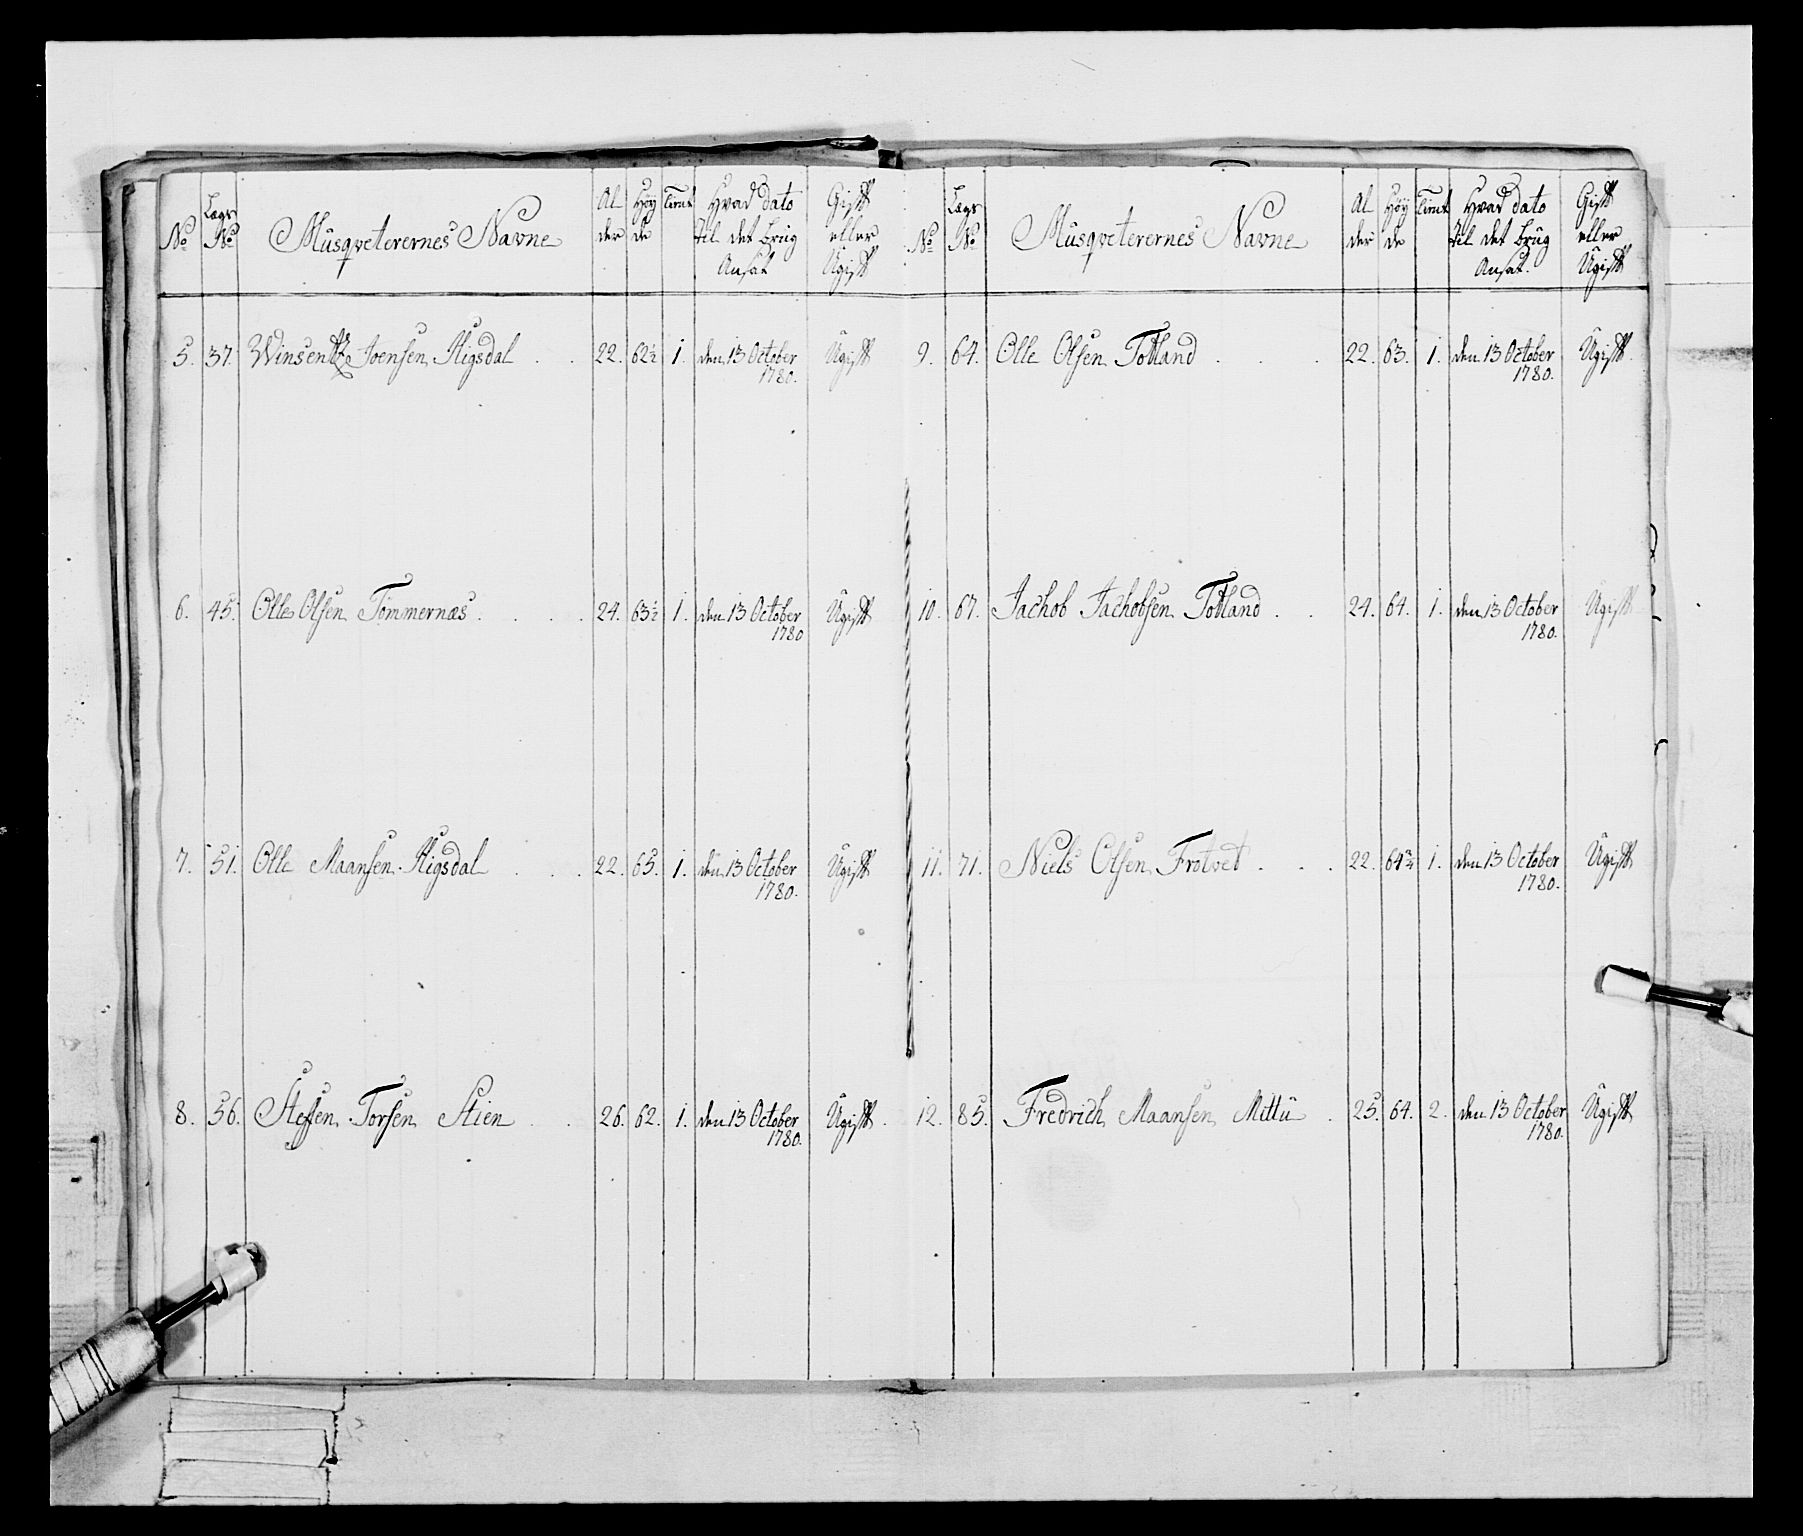 No | Lægs No | Müsqveterernes Navne | Al der | Høy de | Tient | Hvad dato til det brüg Ansat | Gift eller Ügift
5. | 37. | Winsentz Joensen Stigsdal | 22. | 62½ | 1. | den 13 October 1780. | Ügift
6. | 45. | Olle Olsen Tømmernæs | 24. | 63½ | 1. | den 13 October 1780 | Ügift
7. | 51. | Olle Maansen Stigsdal | 22. | 65. | 1. | den 13 October 1780. | Ügift
8. | 56. | Steffen Torsen Stien | 26. | 62. | 1. | den 13 October 1780. | Ügift
No | Lægs No | Müsqveterernes Navne | Al der | Høy de | Tient | Hvad dato til det brüg Ansat. | Gift eller Ügift
9. | 64. | Olle Olsen Totland | 22. | 63. | 1. | den 13 October 1780. | Ügift
10. | 67. | Jachob Jachobsen Totland | 24. | 64. | 1. | den 13 October 1780. | Ügift
11. | 71. | Niels Olsen Frøtvet | 22. | 64¾ | 1. | den 13 October 1780. | Ügift
12. | 85. | Fredrich Maansen Mittü | 25. | 64. | 2. | den 13 October 1780. | Ügift